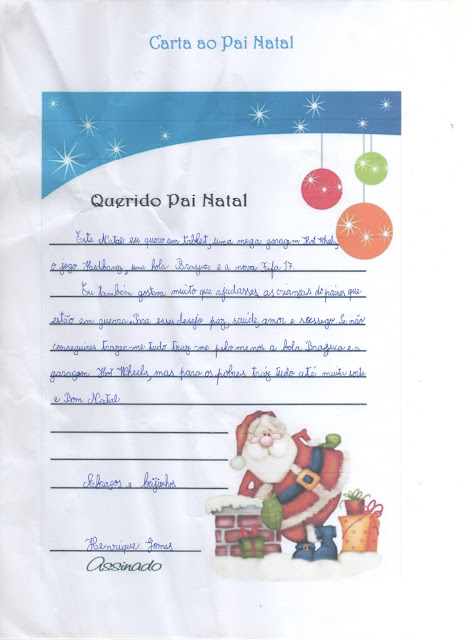 Carta ao Pai Natal
Querido Pai Natal
Este Natal eu quero um tablet, uma mega garagem Hot Wheels,
o jogo uma bola Brazuca e a nova Fifa 17.
Eu também gostava muito que ajudasses as crianças do países que
estão em guerra. Para esses desejo paz, saúde, amor e sossego. Se não
conseguires trazer-me tudo traz-me pelo menos a bola Brazuca e a
garagem Hot Wheels, mas para os pobres traz tudo até muita sorte
e Bom Natal
Abraços e beijinhos
Henrique Gomes
Assinado